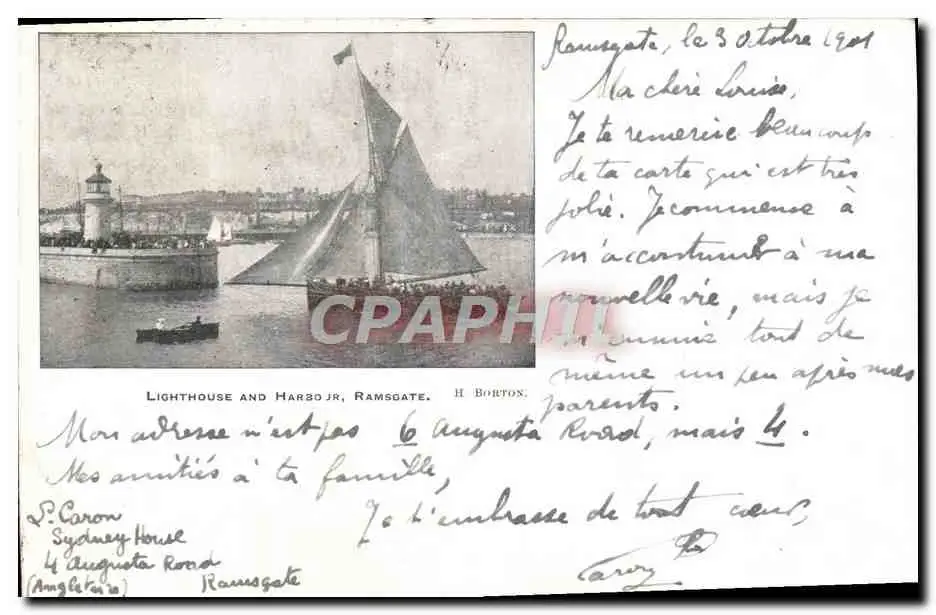 Ramsgate, le 3 Octobre 1901
Ma chère Louise,
Je te remercie beaucoup
de ta carte qui est très
jolie. Je commence à
m'accoutumer à ma
nouvelle vie, mais je
m'ennuie tout de
même un peu après mes
parents.
CPAPHIL
LIGHTHOUSE AND HARBOUR, RAMSGATE. H BORTON.
Mon adresse n'est pas 6 Augusta Road, mais 4.
Mes amitiés à ta famille,
Je t'embrasse de tout cœur,
Caron
Caron
Sydney House
4 Augusta Road
(Angleterre) Ramsgate